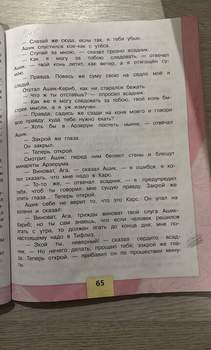 — Слезай же сюда, если так, я тебя убью.
Ашик спустился кое-как с утёса.
— Ступай за мною, — сказал грозно всадник.
— Как я могу за тобою следовать, — отвечал
Ашик, — твой конь летит, как ветер, а я отягощён су-
мою.
— Правда. Повесь же суму свою на седло моё и
следуй.
Отстал Ашик-Кериб, как ни старался бежать.
— Что ж ты отстаёшь? — спросил всадник.
— Как же я могу следовать за тобою, твой конь бы-
стрее мысли, а я уж измучен.
— Правда; садись же сзади на коня моего и говори
всю правду: куда тебе нужно ехать?
— Хоть бы в Арзерум поспеть нынче, — отвечал
Ашик.
— Закрой же глаза.
Он закрыл.
— Теперь открой.
Смотрит Ашик: перед ним белеют стены и блещут
минареты Арзерума.
— Виноват, Ага, — сказал Ашик, — я ошибся, я хо-
тел сказать, что мне надо в Карс.
— То-то же, — отвечал всадник, — я предупредил
тебя, чтоб ты говорил мне сущую правду. Закрой же
опять глаза... Теперь открой.
Ашик себе не верит то, что это Карс. Он упал на
колени и сказал:
— Виноват, Ага, трижды виноват твой слуга Ашик-
Кериб; но ты сам знаешь, что если человек решился
лгать с утра, то должен лгать до конца дня: мне по-
настоящему надо в Тифлиз.
— Экой ты, неверный! — сказал сердито всад-
ник. — Но нечего делать, прощаю тебе; закрой же гла-
за. Теперь открой, — прибавил он по прошествии мину-
ты.
65